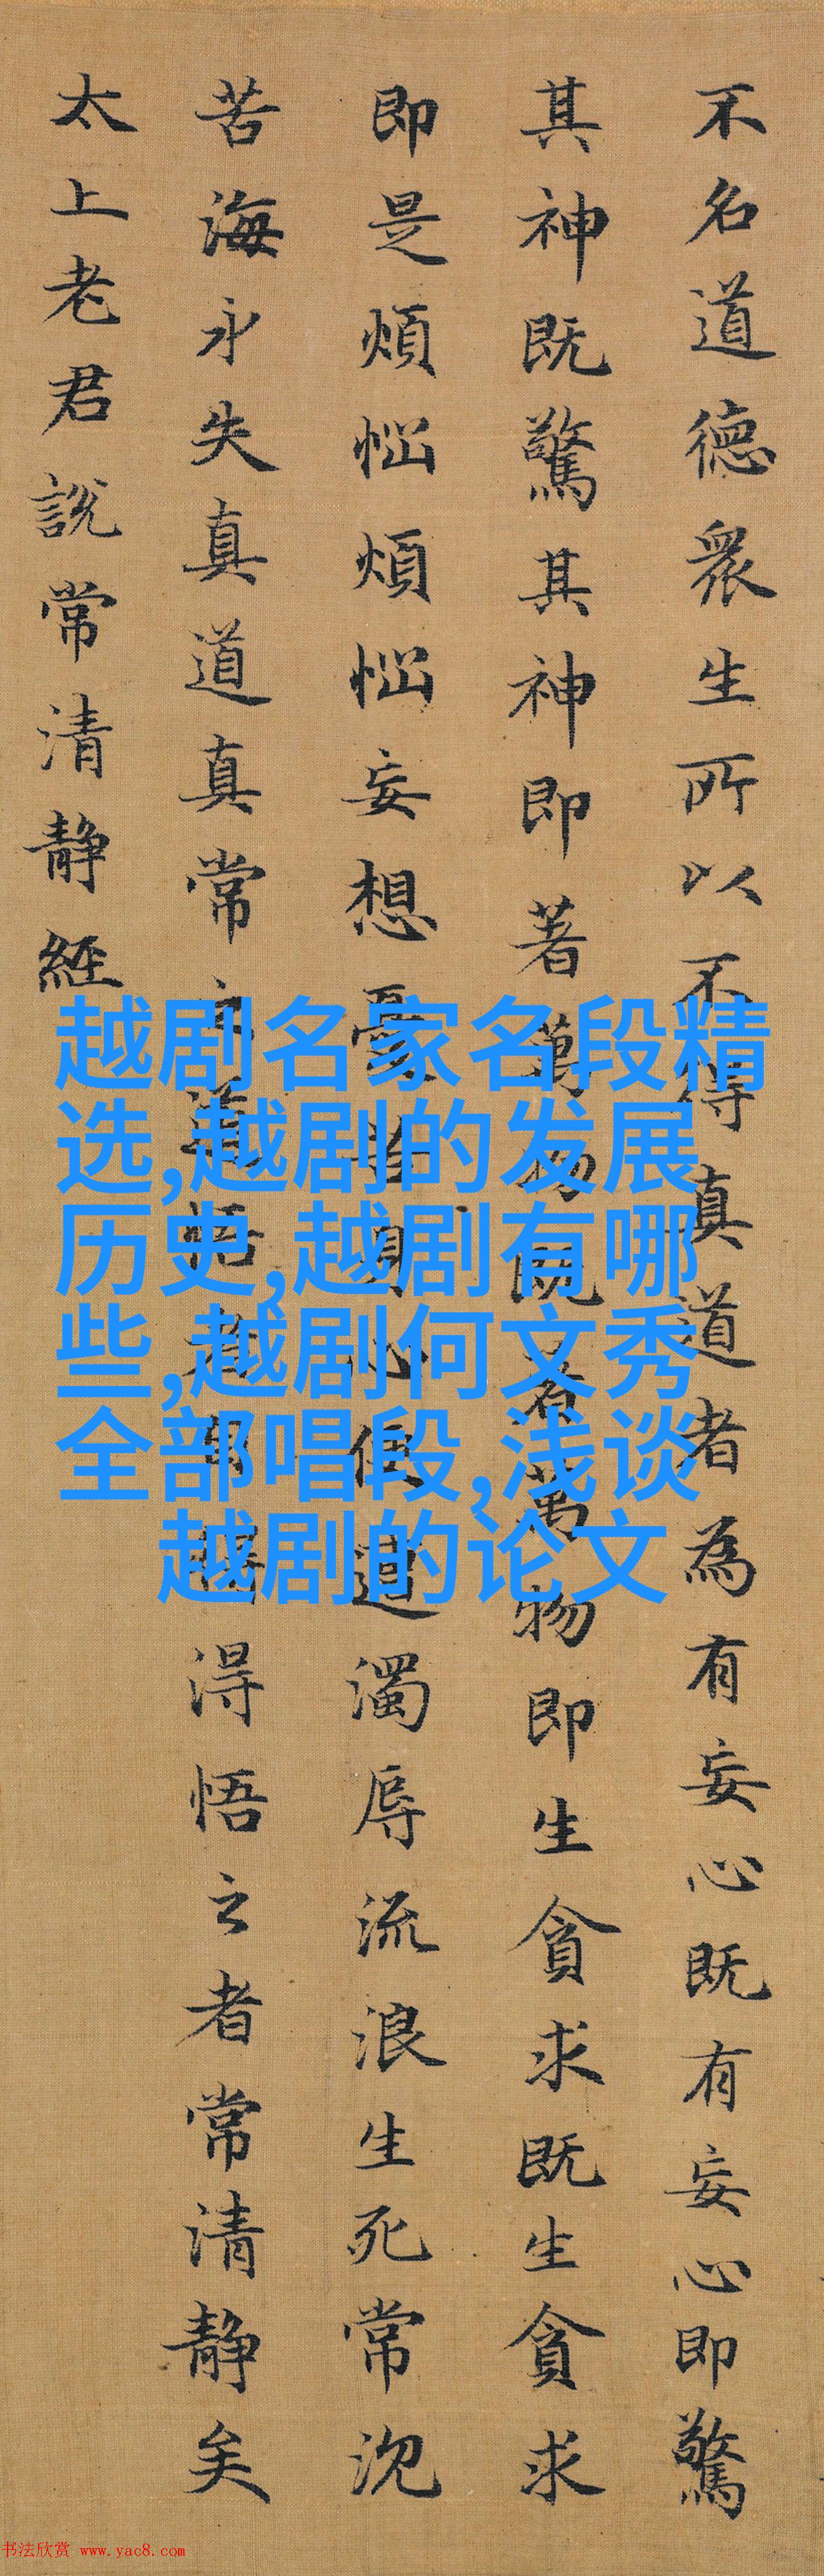 不名道德衆生所以不得真道者為有妄心既有妄心即驚
其神既驚其神即著萬物既著萬物即生貪求既生貪求
即是煩惱煩惱妄想憂苦身心便遭濁辱流浪生死常沉
苦海永失真道真常之道悟者自得得悟之者常清靜矣
太上老君說常清靜經
越剧名家名段精
选,越剧的发展
历史,越剧有哪
些,越剧何文秀
全部唱段,浅谈
越剧的论文
书法欣赏 www.yac8.com